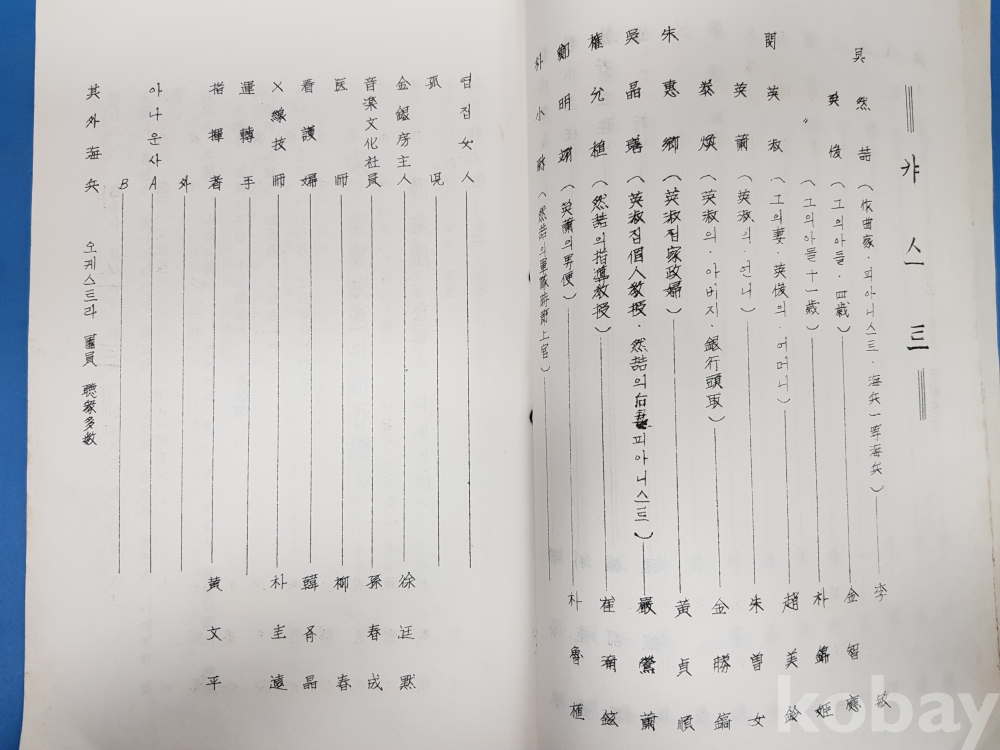 캬스트
吳然喆 (作曲家·피아니스트·海兵一等海兵) 李 敏
英俊 (그의아들·四歲) 金智應
〃 (그의아들十一歲) 朴錦姬
閔英淑 (그의妻·英俊의·어머니) 趙美鈴
英蘭 (英淑의·언니) 朱曽女
泰煥 (英淑의·아버지·銀行頭取) 金勝鎬
朱惠卿 (英淑집家政婦) 黃貞順
吳晶 (英淑집個人敎授·然喆의后妻피아니스트) 嚴鶯蘭
權允植 (然喆의指導敎授) 崔湳鉉
鄭明 (英蘭의男便) 朴魯植
朴小尉 (然喆의軍隊時節上官)
떡집女人
孤児
金銀房主人 徐廷默
音楽文化社員 孫春成
医師 柳春
看護婦 韓胥晶
X線技師 朴圭遠
運轉手
指揮者 黃文平
外
아나운사 A
B
其外海兵 오케스트라 團員 聽衆多数
kobay